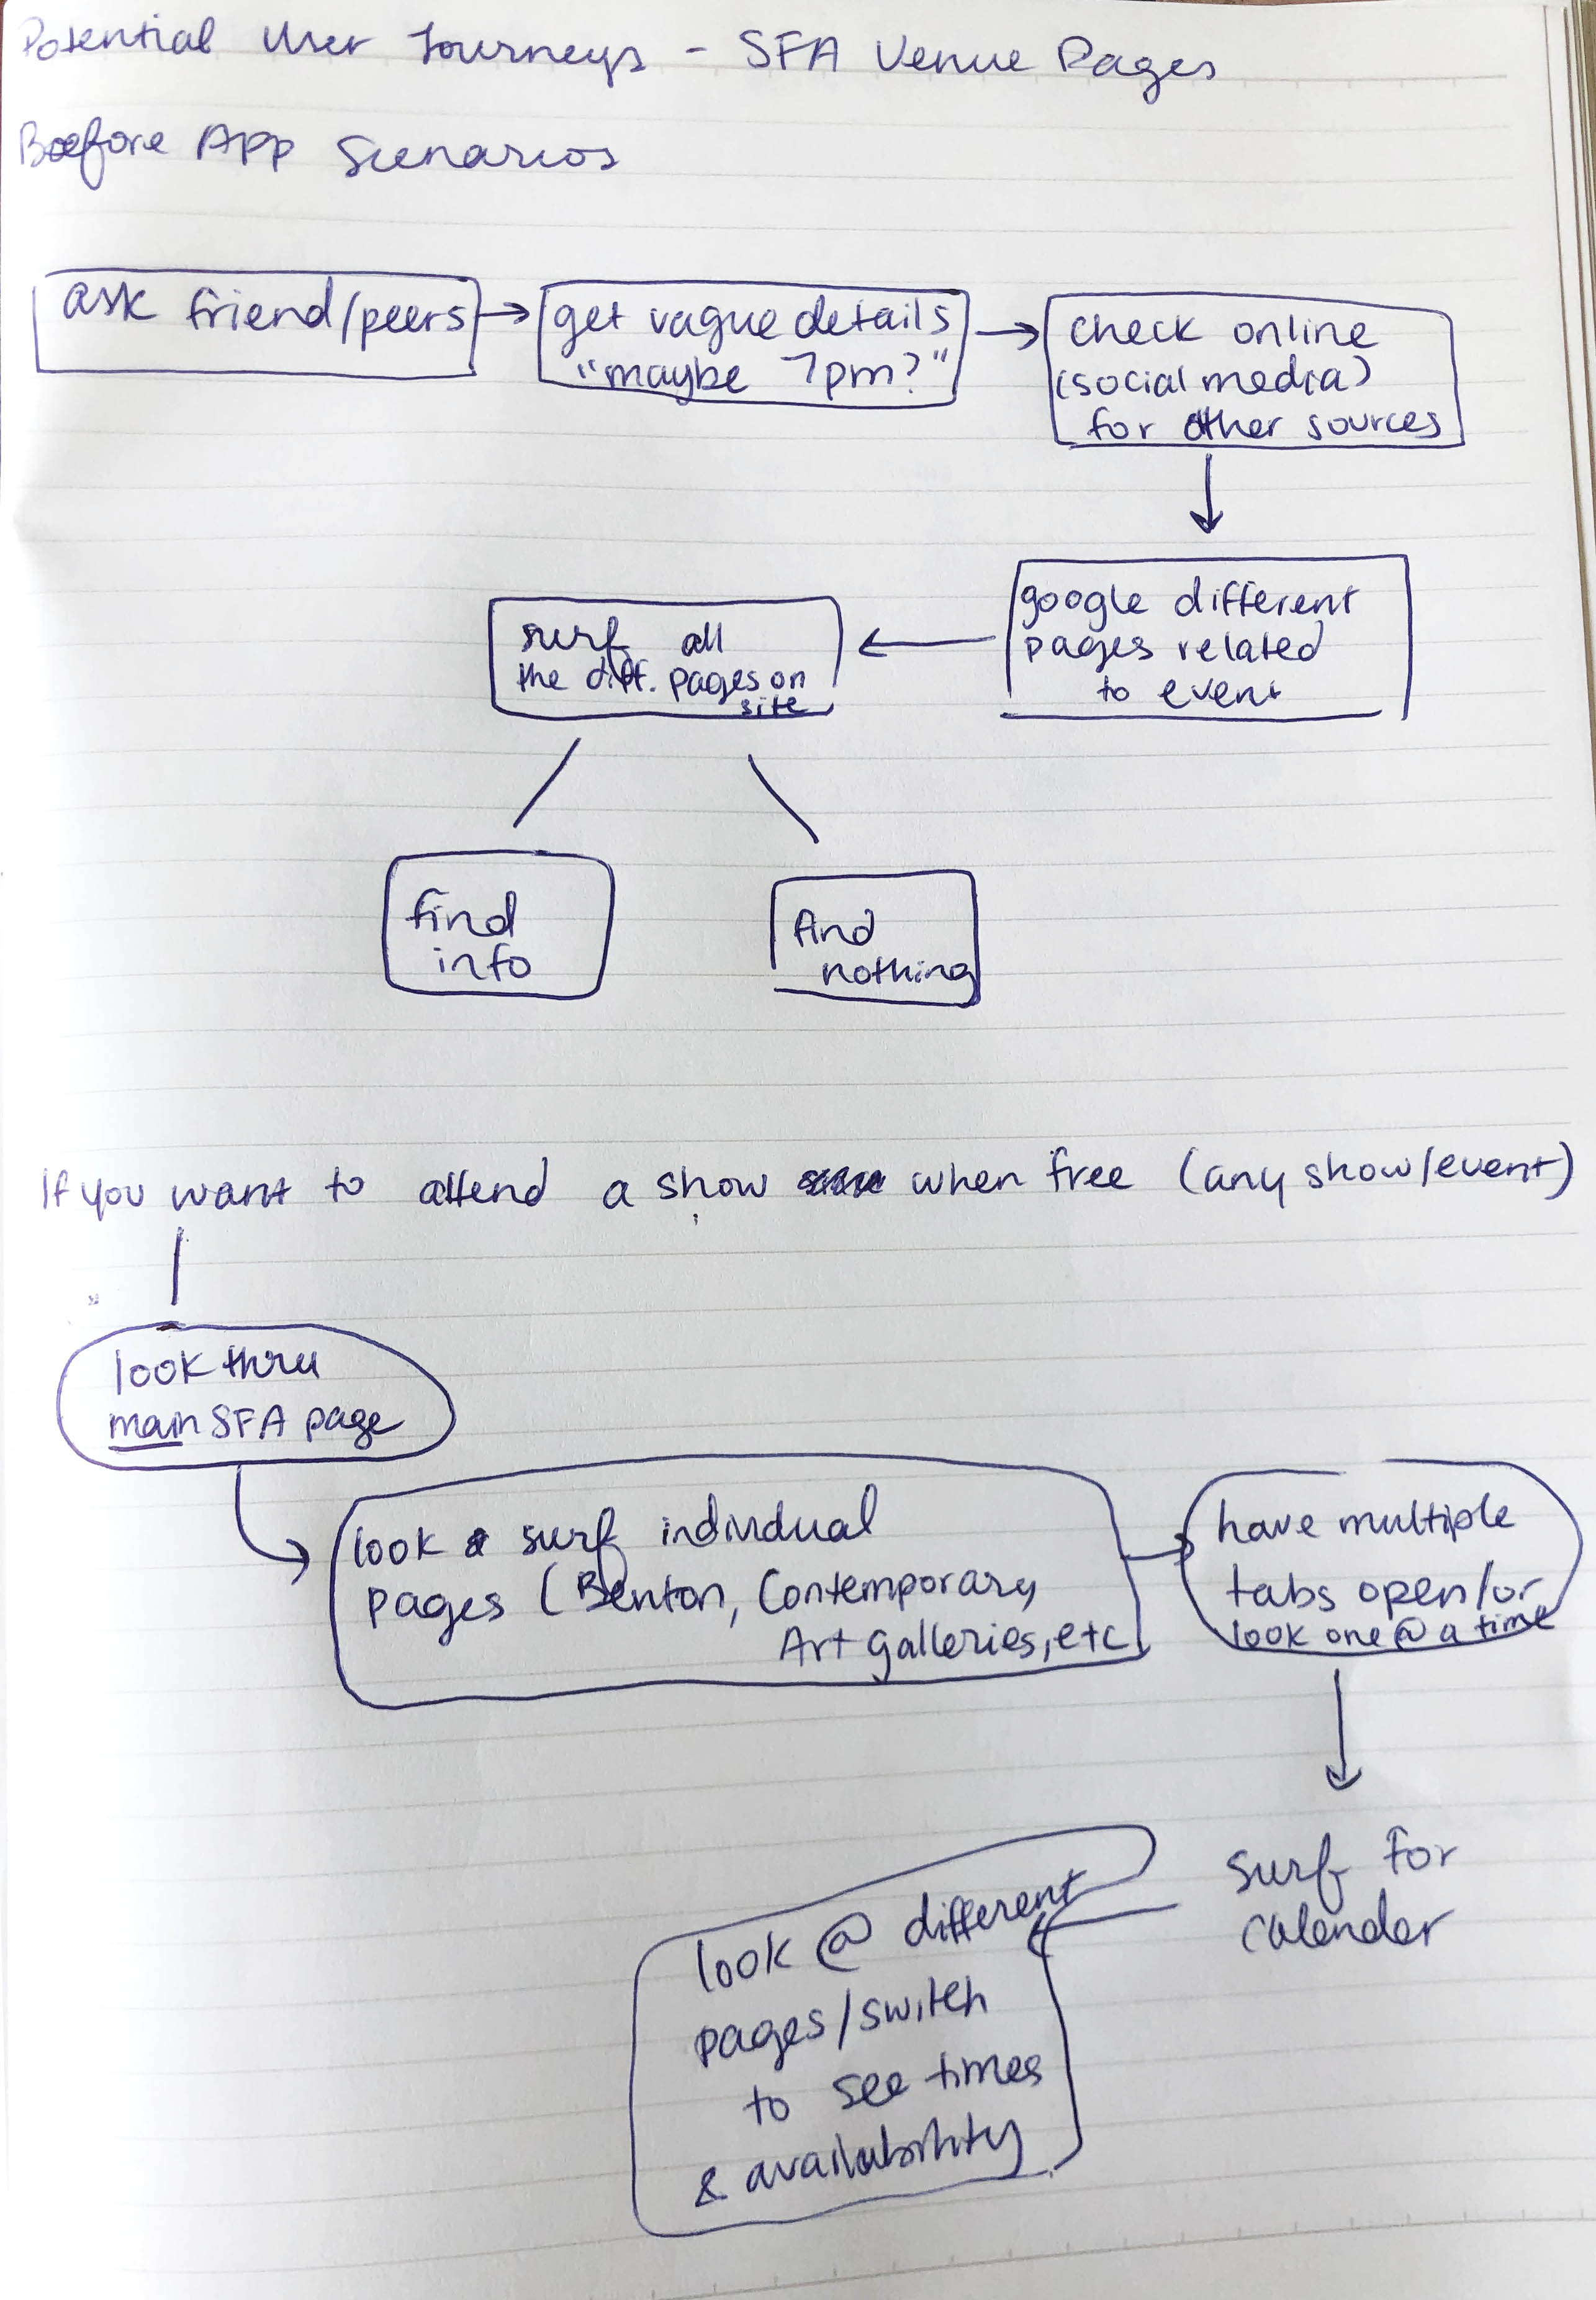 Potential User Journeys - SFA Venue Pages
Before App Scenarios
ask friend/peers
get vague details
"maybe 7pm?"
check online
(social media)
for other sources
google different
pages related
to event
surf all
the diff. pages on
site
find
info
find
nothing
If you want to attend a show when free (any show/event)
look thru
main SFA page
look & surf individual
pages (Benton, Contemporary
Art Galleries, etc
have multiple
tabs open/or
look one @ a time
surf for
calender
look @ different
pages/switch
to see times
& availability